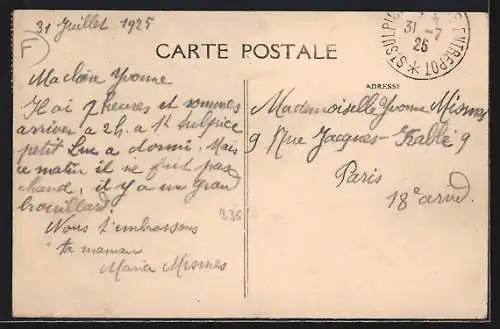 31 Juillet 1925
F
CARTE POSTALE
ST SULPICE ENTREPOT
31 -7
25
Ma chère Yvonne
Il ai 7 heures et sommes
arriver a 2h. a St Sulpice
petit Luc a dormi. Mais
ce matin il ne fait pas
chaud, il y a un grand
brouillard.
Nous t'embrassons
ta maman
Maria Mismes
336
ADRESSE
Mademoiselle Yvonne Mismes
9 Rue Jacques-Kablé 9
Paris
18e arrd.